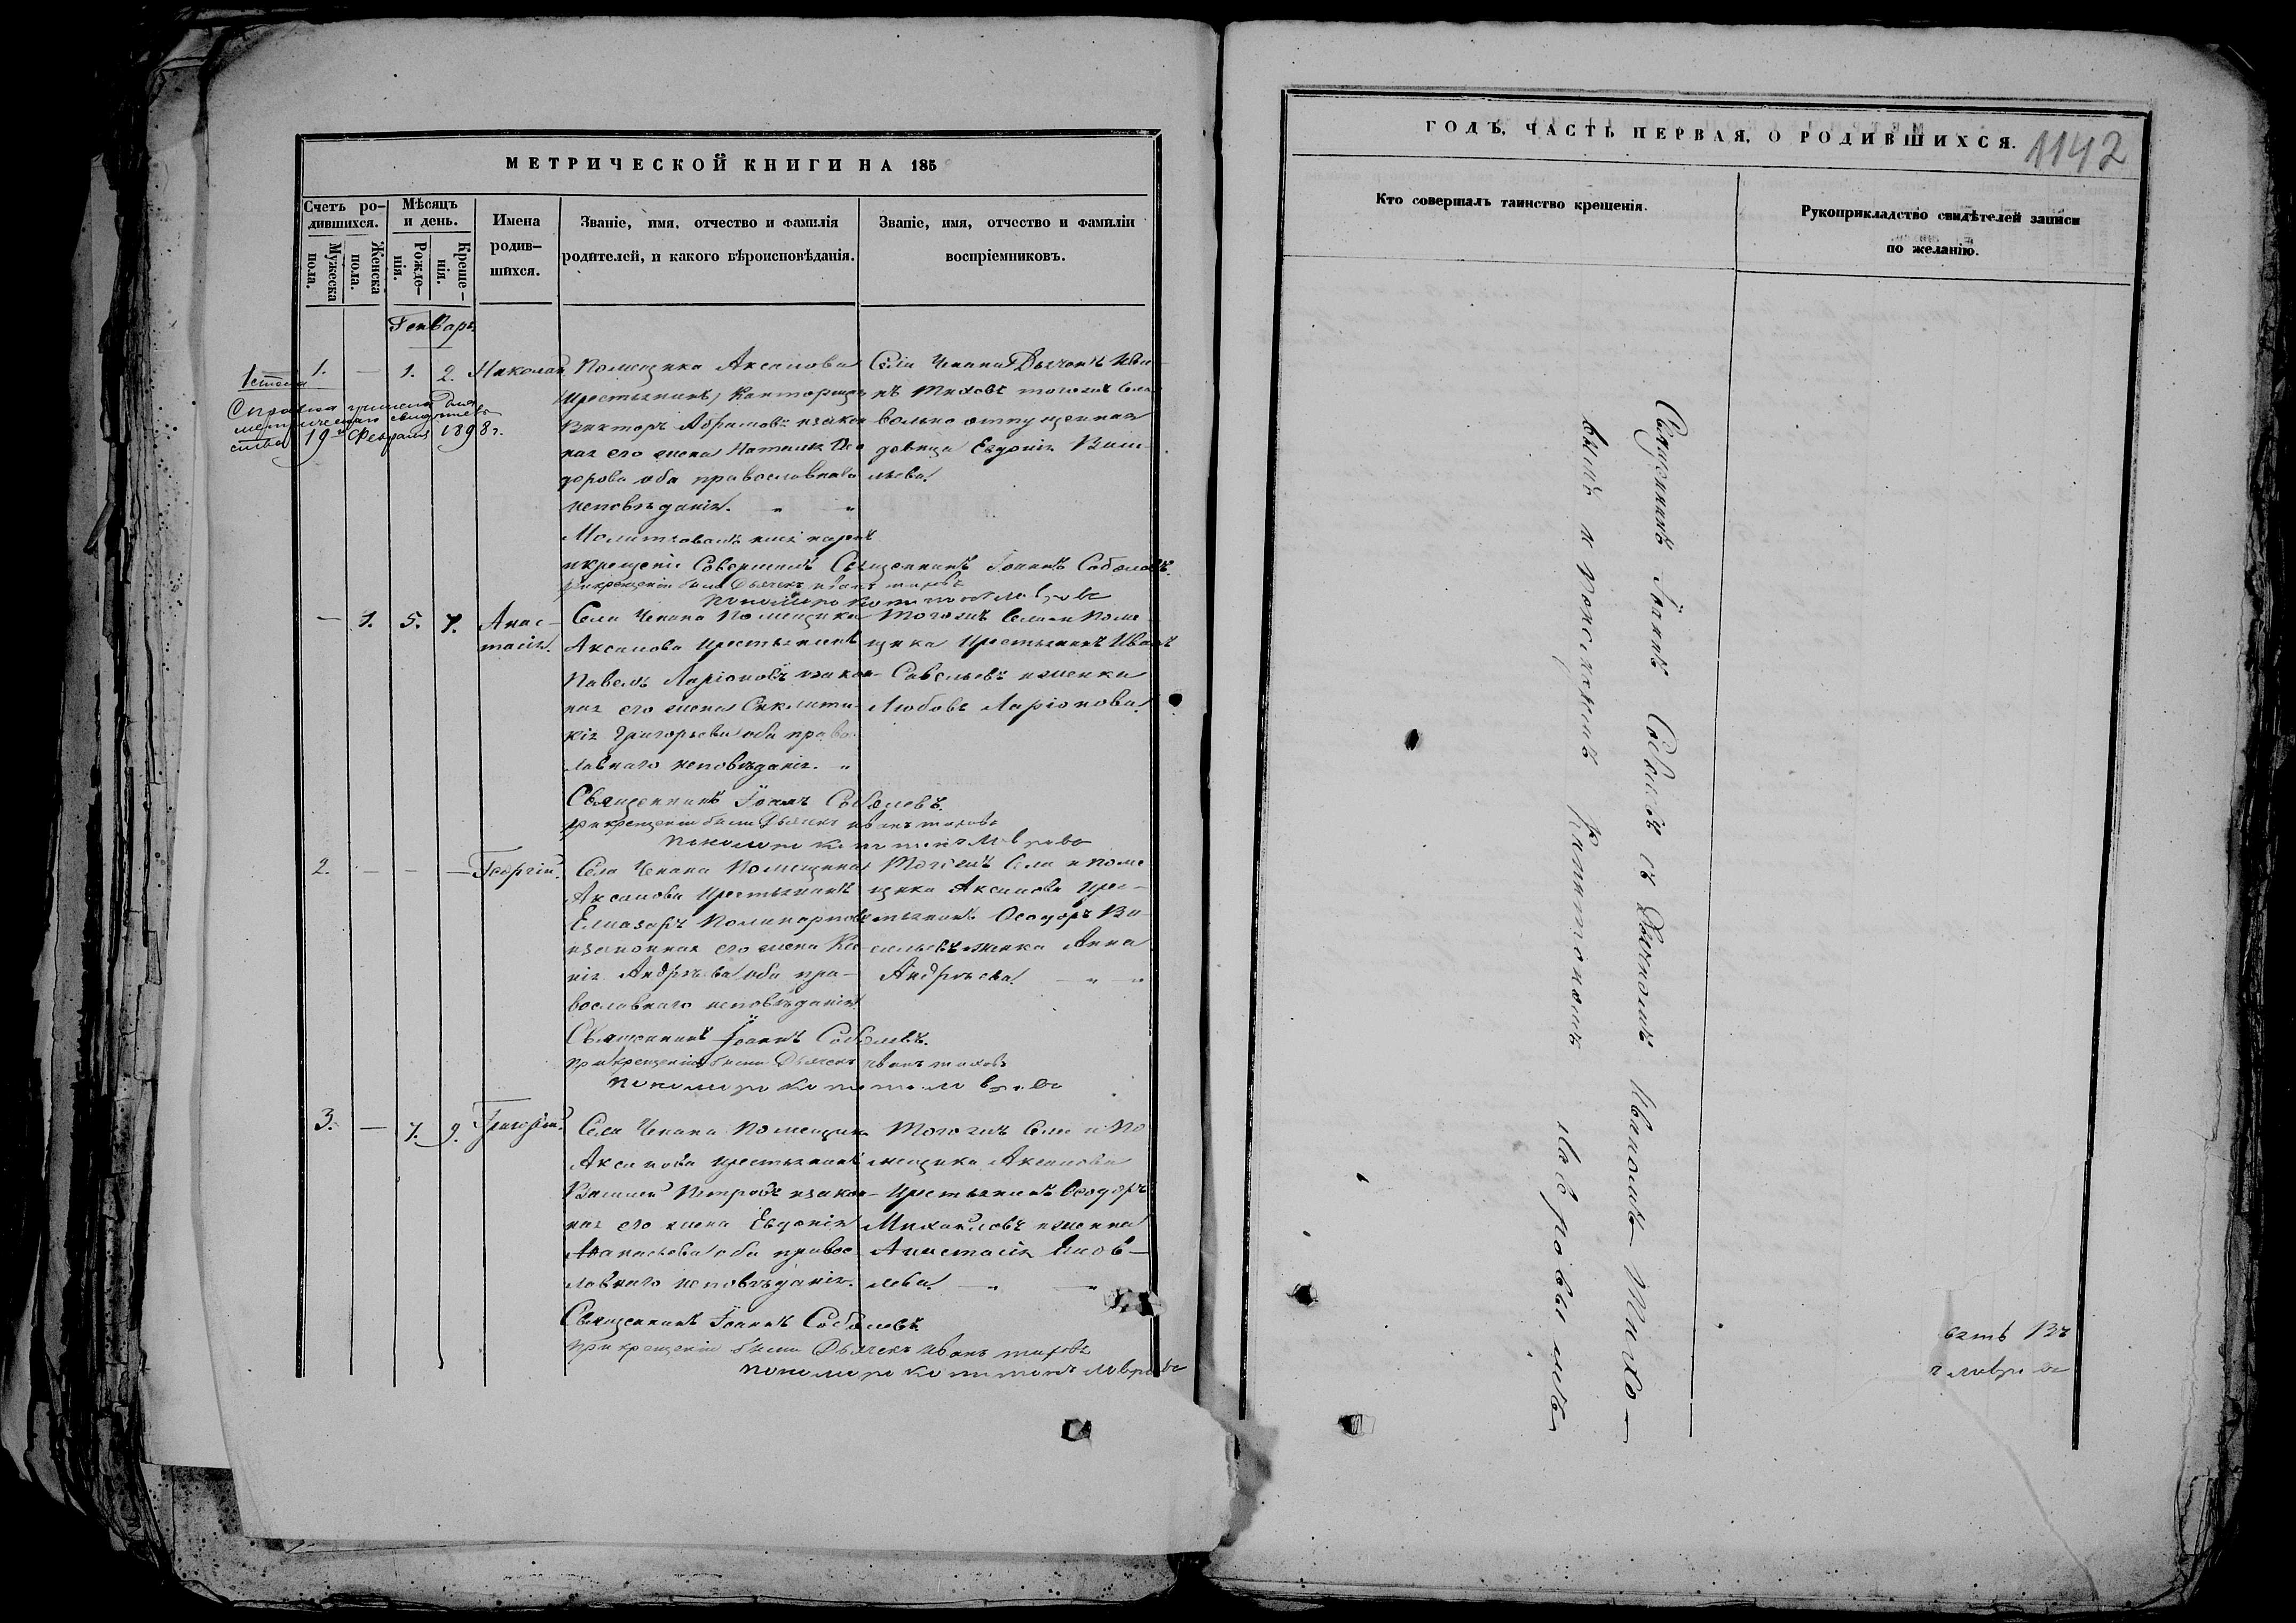 МЕТРИЧЕСКОЙ КНИГИ НА 185
Счетъ ро-
дившихся.
Мужеска
пола.
Женска
пола.
Мѣсяцъ
и день.
Рожде-
нія.
Креще-
нія.
Имена
родив-
шихся.
Званіе, имя, отчество и фамилія
родителей, и какого вѣроисповѣданія.
Званіе, имя, отчество и фамиліи
воспріемниковъ.
Генварь
1. — 1. 2. Николай
Справка
метрическаго
19 Февраля 1898 г.
Помещика Аксакова
крестьянинъ
Викторъ Абрамовъ и закон
ная его жена Наталья
дорова оба православнаго
исповѣданія. „ „
и крещеніе Совершилъ Священникъ Іоаннъ Соболевъ.
при крещеніи были Дьячекъ иванъ тиховъ
Села Чепана Дьячекъ Ива
нъ Тиховъ тогожъ села
вольно отпущенная
девица Евдокія Васи
льева.
— 1. 5. 7. Анас-
тасія.
Села Чепана Помещика
Аксакова крестьянинъ
Павелъ Ларіоновъ и закон-
ная его жена Синклити-
кія Григорьева оба право
лавнаго исповѣданія. „
Священникъ Іоаннъ Соболевъ.
при крещеніи были Дьячекъ иванъ тиховъ
Тогожъ Села и поме
щика крестьянинъ Иванъ
Савельевъ и женка
Любовь Ларіонова.
2. — — — Георгій.
Села Чепана Помещика
Аксакова крестьянинъ
Елиазаръ Поликарповъ
и законная его жена Ксе
нія Андрѣева оба пра-
вославнаго исповѣданія.
Священникъ Іоаннъ Соболевъ.
при крещеніи были Дьячекъ иванъ тиховъ
Тогожъ Села и поме
щика Аксакова крес-
тьянинъ Ѳеодоръ Ва-
сильевъ и женка Анна
Андрѣева. — „ — „
3. — 7. 9. Григорій.
Села Чепана Помещика
Аксакова крестьянинъ
Василий Петровъ и закон-
ная его жена Евдокія
Афанасьева оба правос
лавнаго исповѣданія.
Священникъ Іоаннъ Соболевъ
при крещеніи были Дьячекъ иванъ тиховъ
Тогожъ Села и По
мещика Аксакова
Крестьянинъ Ѳеодоръ
Михайловъ и женка
Анастасія Яков-
лева. — „ „
ГОДЪ, ЧАСТЬ ПЕРВАЯ, О РОДИВШИХСЯ.
1142
Кто совершалъ таинство крещенія.
Рукоприкладство свидѣтелей записи
по желанію.
Священникъ Іоаннъ Соболевъ съ Дьячкомъ Иваномъ Тихо-
вымъ и пономаремъ Капитономъ